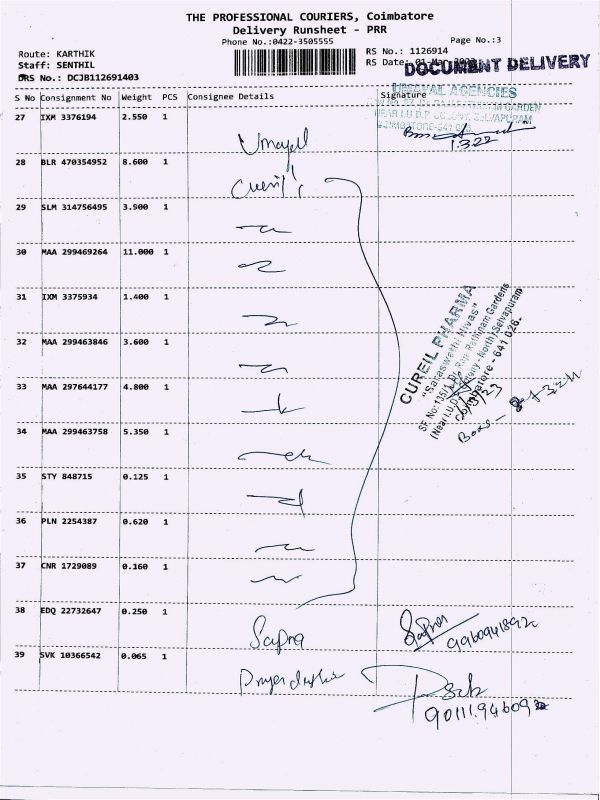 THE PROFESSIONAL COURIERS, Coimbatore
Delivery Runsheet - PRR
Phone No.:0422-3505555
Page No.:3
Route: KARTHIK
RS No.: 1126914
Staff: SENTHIL
RS Date: 01-Mar
DOCUMENT DELIVERY
DRS No.: DCJB112691403
S No Consignment No Weight PCS Consignee Details Signature
AGENCIES
GARDEN
NEAR I.U.D.P. COLONY, SELVAPURAM
COIMBATORE-641 026
27 IXM 3376194 2.550 1
1.3.22
Umayal
28 BLR 470354952 8.600 1
Cureil
29 SLM 314756495 3.900 1
30 MAA 299469264 11.000 1
31 IXM 3375934 1.400 1
CUREIL PHARMA
"Saraswathi Nivas"
SF No:135/1, Raji Rathinam Gardens
(Near I.U.D.P Colony - North) Selvapuram
Coimbatore - 641 026.
32 MAA 299463846 3.600 1
33 MAA 297644177 4.800 1
34 MAA 299463758 5.350 1
35 STY 848715 0.125 1
36 PLN 2254387 0.620 1
37 CNR 1729089 0.160 1
38 EDQ 22732647 0.250 1
Sapna
39 SVK 10366542 0.065 1